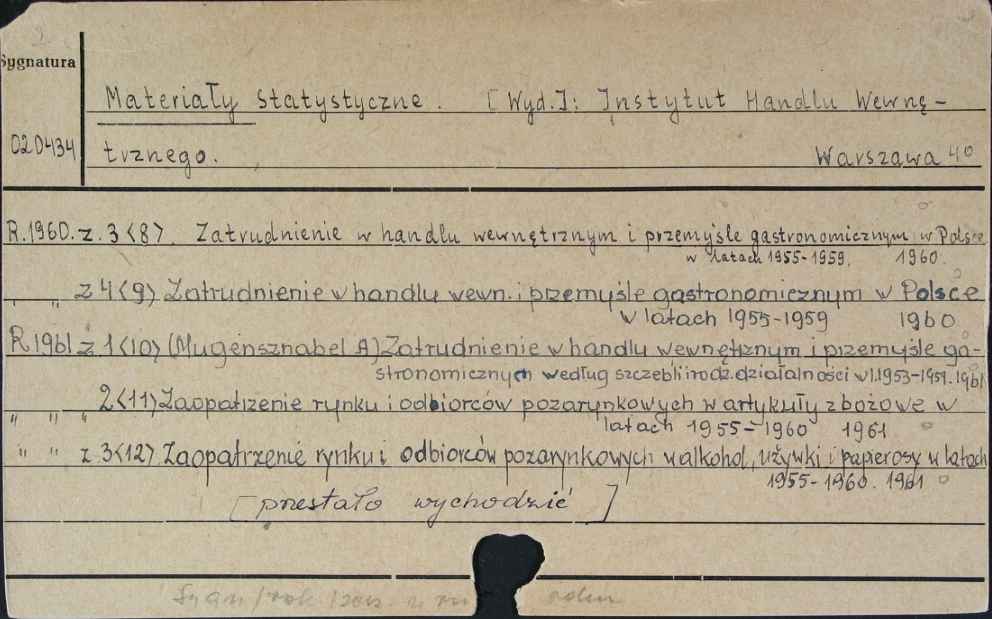 Sygnatura
020434
Materiały statystyczne. [Wyd.]: Instytut Handlu Wewnę-
trznego. Warszawa 40
R.1960. z. 3<8>. Zatrudnienie w handlu wewnętrznym i przemyśle gastronomicznym w Polsce
w latach 1955-1959. 1960.
" " z 4<9> Zatrudnienie w handlu wewn. i przemyśle gastronomicznym w Polsce
w latach 1955-1959 1960
R 1961 z 1<10> (Mugensznabel A) Zatrudnienie w handlu wewnętrznym i przemyśle ga-
stronomicznym według szczebli i rodz. działalności w l. 1953-1959. 1961
" " " 2<11> Zaopatrzenie rynku i odbiorców pozarynkowych w artykuły zbożowe w
latach 1955-1960 1961
" " z 3<12> Zaopatrzenie rynku i odbiorców pozarynkowych w alkohol, używki i papierosy w latach
1955-1960. 1961
[przestało wychodzić]